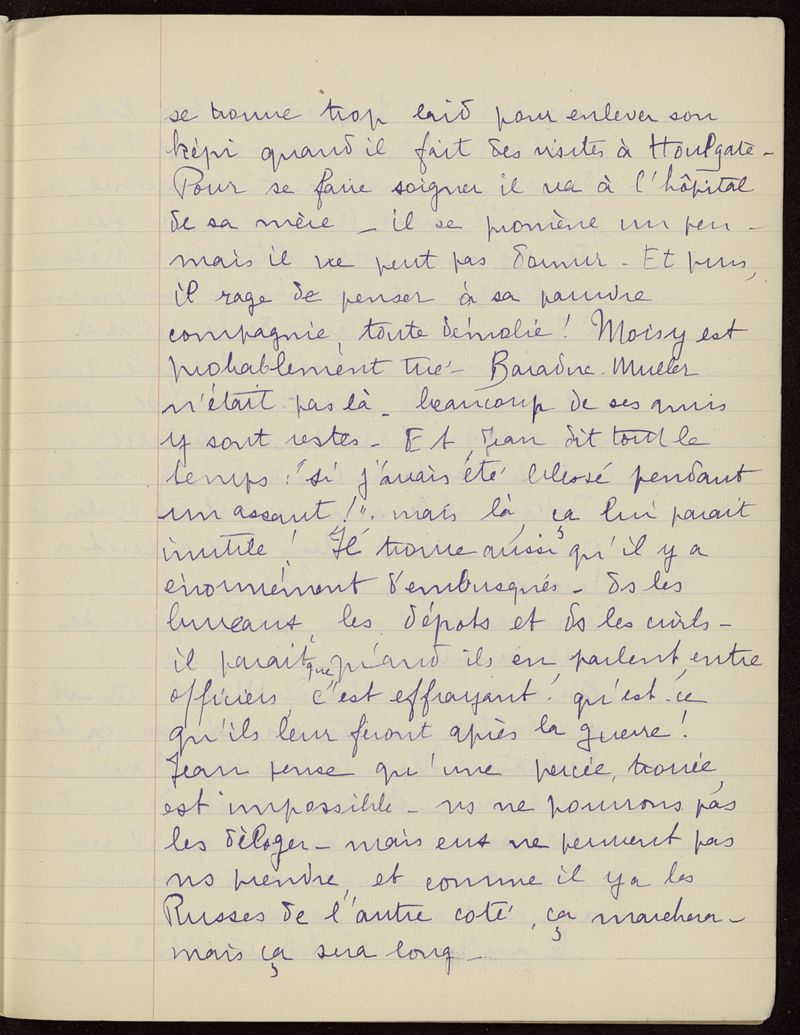 se trouve trop laid pour enlever son
képi quand il fait des visites à Houlgate -
Pour se faire soigner il va à l'hôpital
de sa mère - il se promène un peu -
mais il ne peut pas dormir - Et puis,
il rage de penser à sa pauvre
compagnie, toute démolie ! Moisy est
probablement tué - Baraduc-Muller
n'était pas là - beaucoup de ses amis
y sont restés - Et Jean dit tout le
temps : "si j'avais été blessé pendant
un assaut !" . mais là, ça lui parait
inutile ! Il trouve aussi qu'il y a
énormément d'embusqués - ds les
bureaux, les dépots et ds les civils -
il parait que quand ils en parlent entre
officiers, c'est effrayant ! qu'est-ce
qu'ils leur feront après la guerre !
Jean pense qu'une percée, trouée,
est impossible - ns ne pourrons pas
les déloger - mais eux ne peuvent pas
ns prendre, et comme il y a les
Russes de l'autre coté, ça marchera -
mais ça sera long -